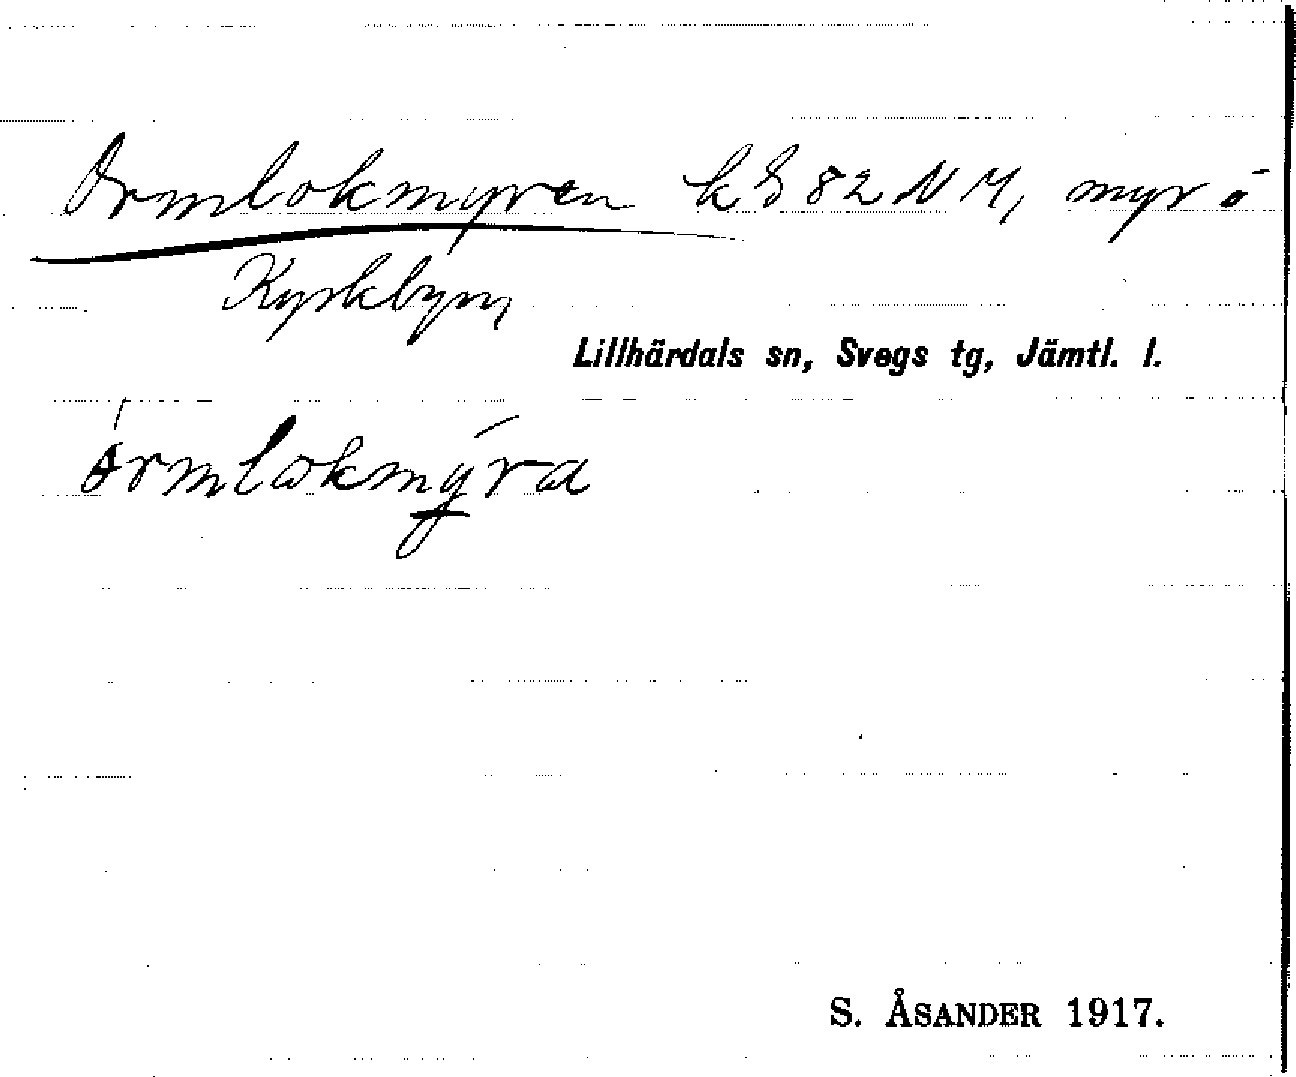 Ormlokmyren k S 82 N M, myr å
Kyrkbyn,
Lillhärdals sn, Svegs tg, Jämtl. l.
órmlokmýra
S. ÅSANDER 1917.